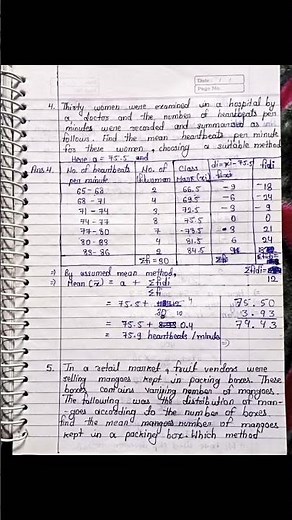 Date : / /
Page No.
4. Thirty women were examined in a hospital by
a doctor and the number of heartbeats per
minutes were recorded and summarised as
follows. Find the mean heartbeats per minute
for these women, choosing a suitable method.
Here a = 75.5 and
Ans 4. No. of heartbeats per minute No. of women Class Mark (xi) di=xi-75.5 fidi
65-68 2 66.5 -9 -18
68-71 4 69.5 -6 -24
71-74 3 72.5 -3 -9
74-77 8 75.5 0 0
77-80 7 73.5 3 21
80-83 4 81.5 6 24
83-86 2 84.5 9
Σfi=30 Σfidi=12
⇒ By assumed mean method,
⇒ Mean (x̄) = a + Σfidi
Σfi
= 75.5 + 12 4
30 10
= 75.5 + 0.4
= 75.9 heartbeats / minute
75.50
3.93
79.43
5. In a retail market, fruit vendors were
selling mangoes kept in packing boxes. These
boxes contains varying number of mangoes.
The following was the distribution of man-
-goes according to the number of boxes.
find the mean number of mangoes
kept in a packing box. Which method